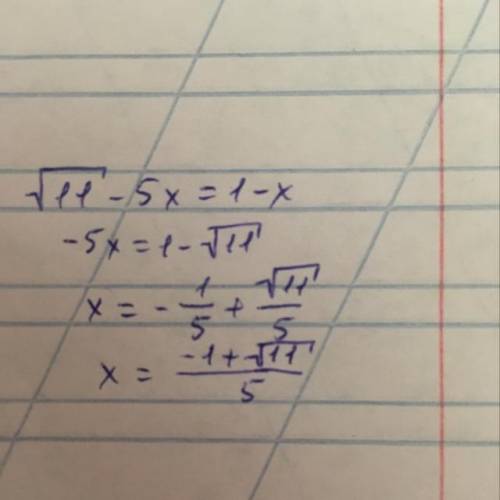 √11 - 5x = 1 - x
-5x = 1 - √11
x = - 1/5 + √11/5
x = (-1 + √11)/5